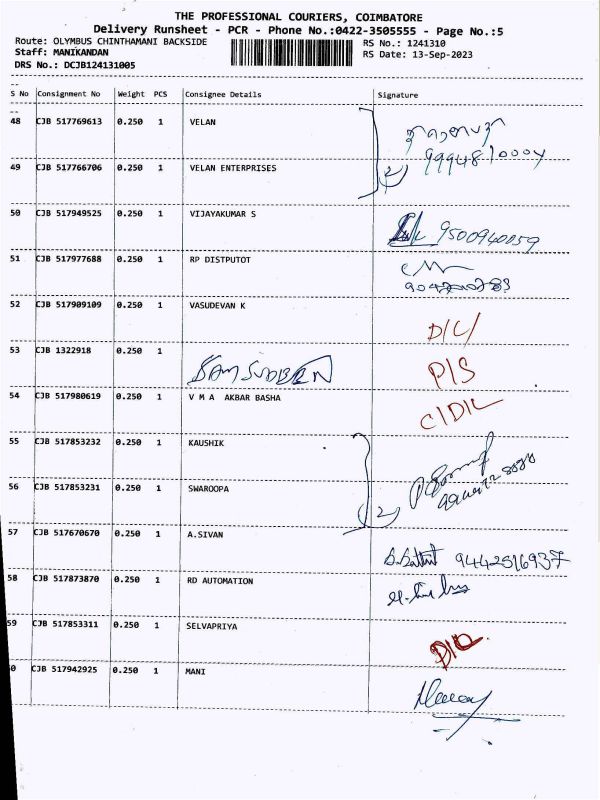 THE PROFESSIONAL COURIERS, COIMBATORE
Delivery Runsheet - PCR - Phone No.:0422-3505555 - Page No.:5
Route: OLYMBUS CHINTHAMANI BACKSIDE RS No.: 1241310
Staff: MANIKANDAN RS Date: 13-Sep-2023
DRS No.: DCJB124131005
S No Consignment No Weight PCS Consignee Details Signature
48 CJB 517769613 0.250 1 VELAN
49 CJB 517766706 0.250 1 VELAN ENTERPRISES
2
50 CJB 517949525 0.250 1 VIJAYAKUMAR S
9500940059
51 CJB 517977688 0.250 1 RP DISTPUTOT
52 CJB 517909109 0.250 1 VASUDEVAN K
D/C/
53 CJB 1322918 0.250 1 SAMSUDEEN
P/S
54 CJB 517980619 0.250 1 V M A AKBAR BASHA
C/D/L
55 CJB 517853232 0.250 1 KAUSHIK
56 CJB 517853231 0.250 1 SWAROOPA
2
57 CJB 517670670 0.250 1 A.SIVAN
9442516937
58 CJB 517873870 0.250 1 RD AUTOMATION
59 CJB 517853311 0.250 1 SELVAPRIYA
0 CJB 517942925 0.250 1 MANI